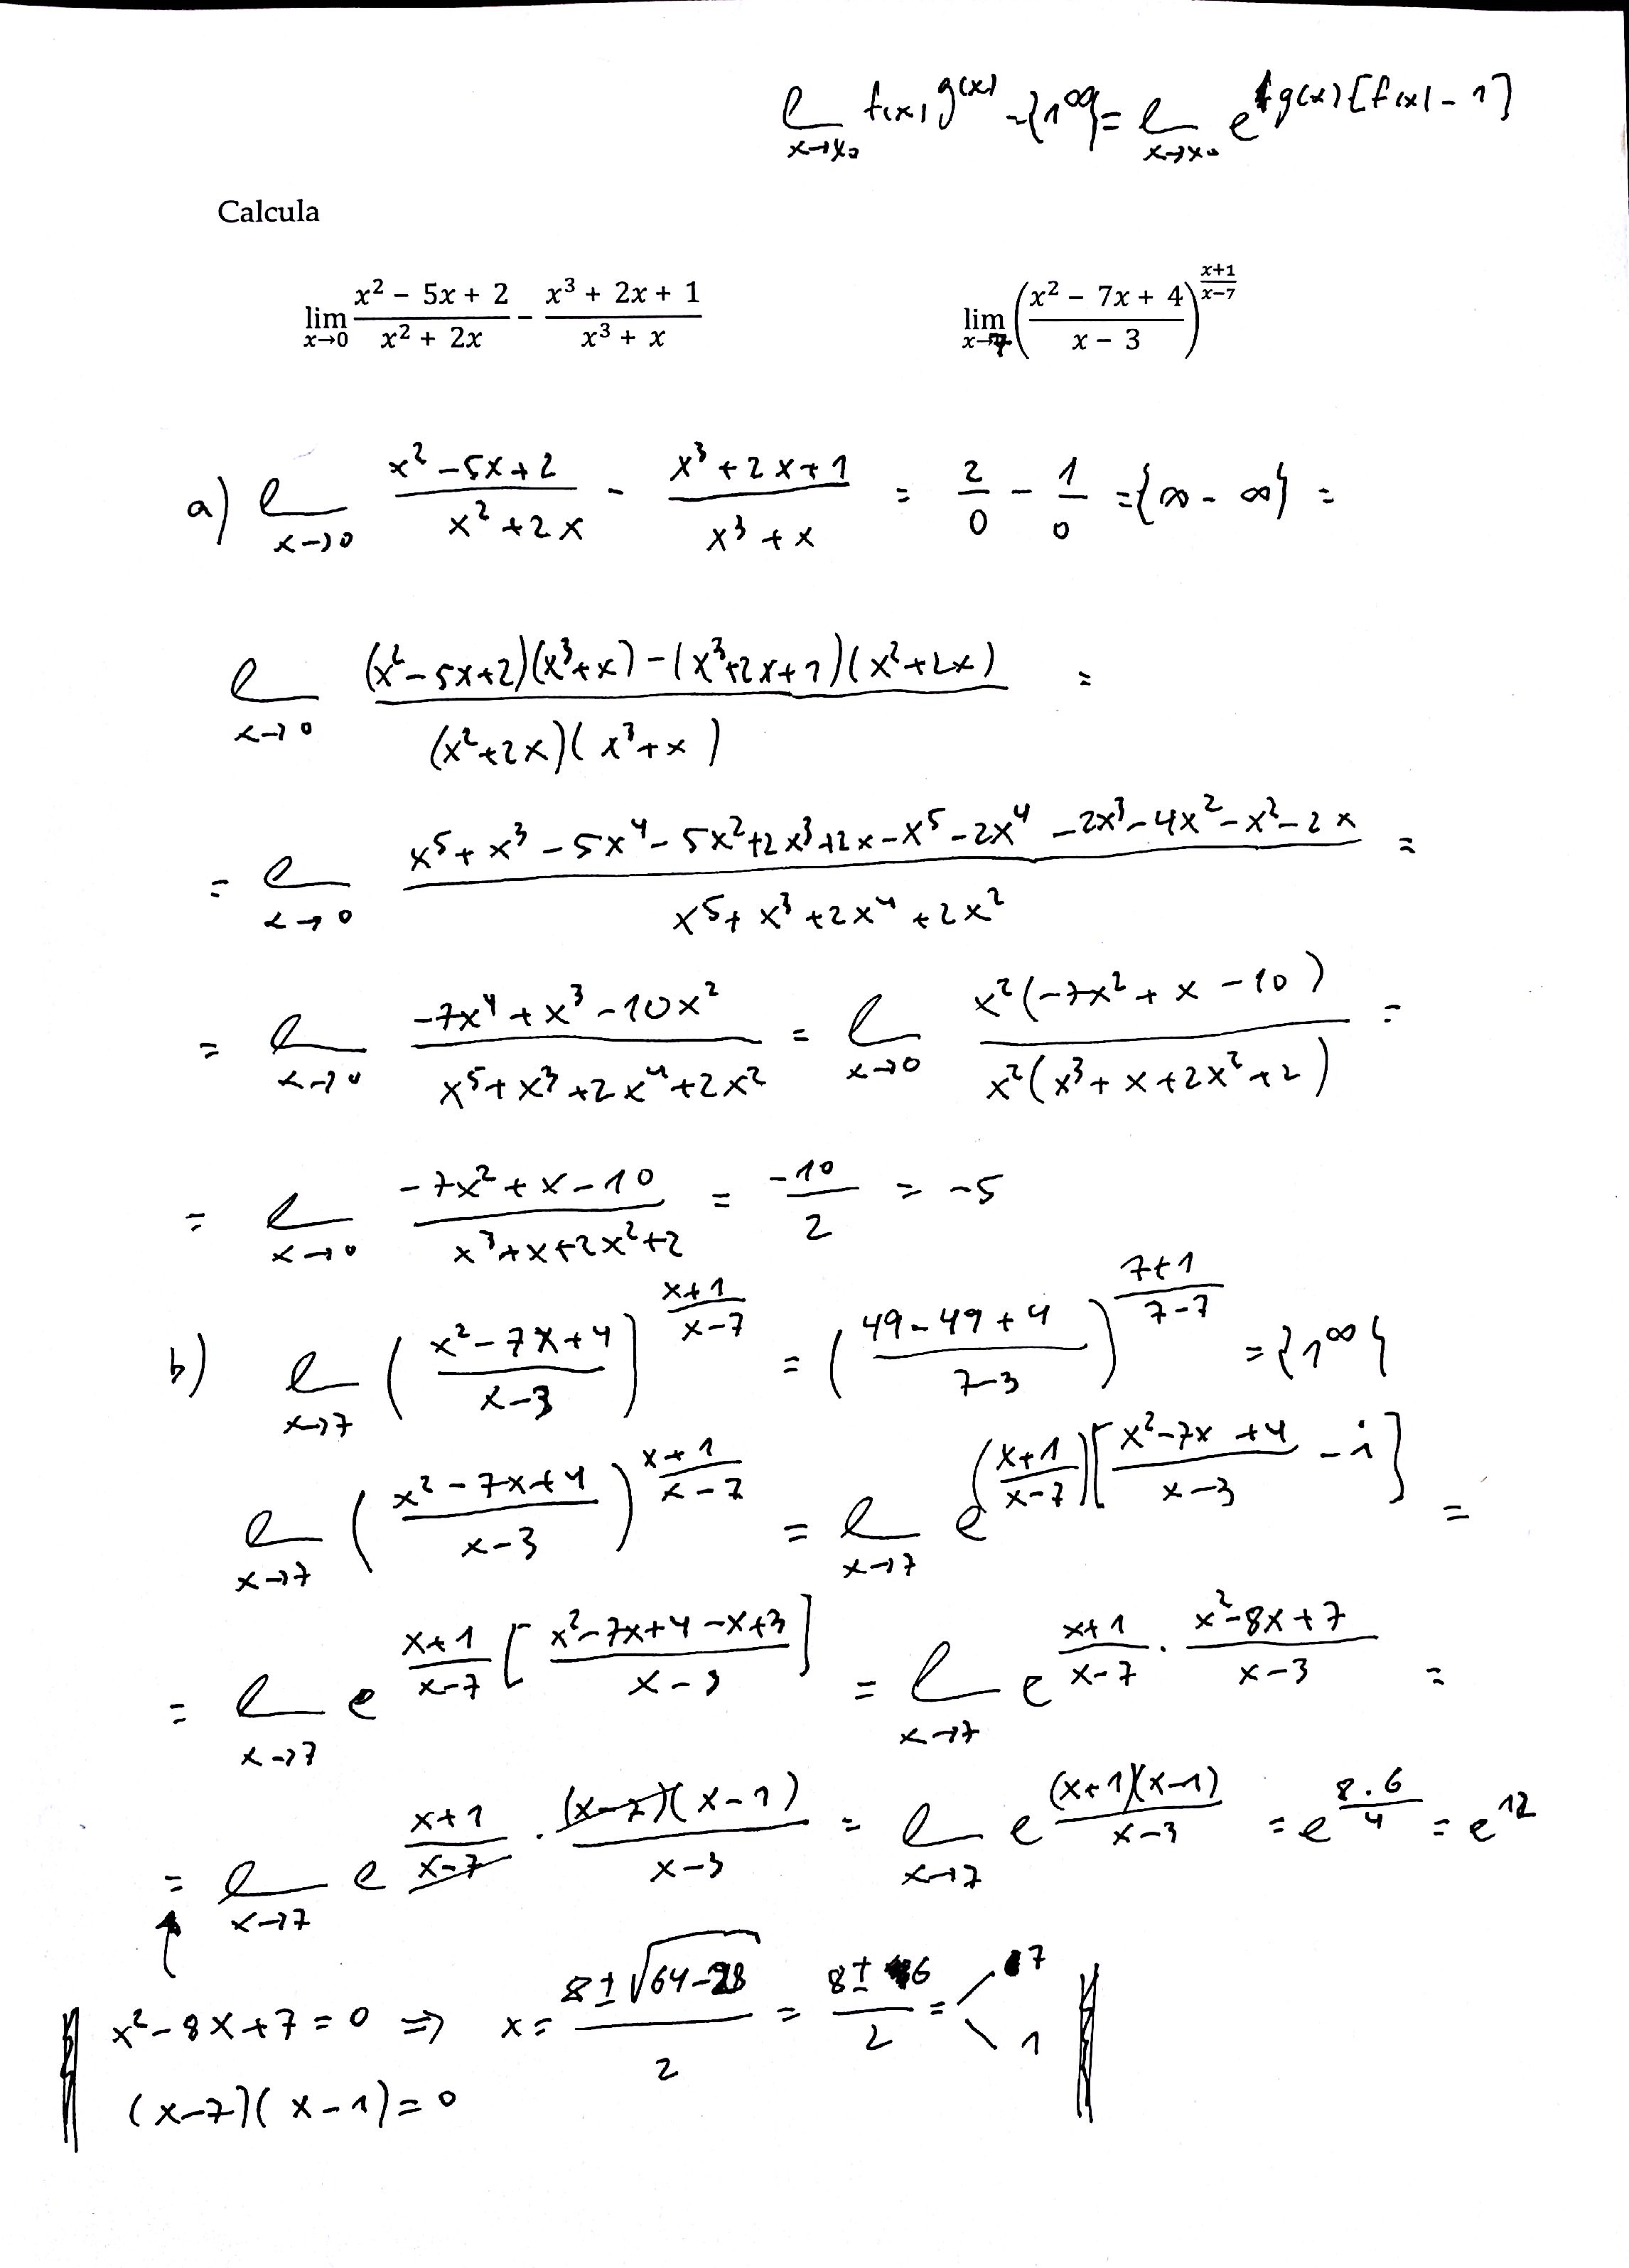 lim_{x→x₀} f(x)^{g(x)} = {1^∞} = lim_{x→x₀} e^{g(x)[f(x)-1]}
Calcula
lim_{x→0} (x² − 5x + 2)/(x² + 2x) − (x³ + 2x + 1)/(x³ + x)    lim_{x→7} ((x² − 7x + 4)/(x − 3))^{(x+1)/(x−7)}
a) lim_{x→0} (x²-5x+2)/(x²+2x) - (x³+2x+1)/(x³+x) = 2/0 - 1/0 = {∞-∞} =
lim_{x→0} ((x²-5x+2)(x³+x)-(x³+2x+1)(x²+2x))/((x²+2x)(x³+x)) =
= lim_{x→0} (x⁵+x³-5x⁴-5x²+2x³+2x-x⁵-2x⁴-2x³-4x²-x²-2x)/(x⁵+x³+2x⁴+2x²) =
= lim_{x→0} (-7x⁴+x³-10x²)/(x⁵+x³+2x⁴+2x²) = lim_{x→0} (x²(-7x²+x-10))/(x²(x³+x+2x²+2)) =
= lim_{x→0} (-7x²+x-10)/(x³+x+2x²+2) = -10/2 = -5
b) lim_{x→7} ((x²-7x+4)/(x-3))^{(x+1)/(x-7)} = ((49-49+4)/(7-3))^{(7+1)/(7-7)} = {1^∞}
lim_{x→7} ((x²-7x+4)/(x-3))^{(x+1)/(x-7)} = lim_{x→7} e^{((x+1)/(x-7))[(x²-7x+4)/(x-3) - 1]} =
= lim_{x→7} e^{(x+1)/(x-7) [(x²-7x+4-x+3)/(x-3)]} = lim_{x→7} e^{(x+1)/(x-7) · (x²-8x+7)/(x-3)} =
= lim_{x→7} e^{(x+1)/(x-7) · ((x-7)(x-1))/(x-3)} = lim_{x→7} e^{((x+1)(x-1))/(x-3)} = e^{8·6/4} = e^{12}
x²-8x+7=0 ⇒ x = (8±√(64-28))/2 = (8±6)/2 = 7 1
(x-7)(x-1)=0